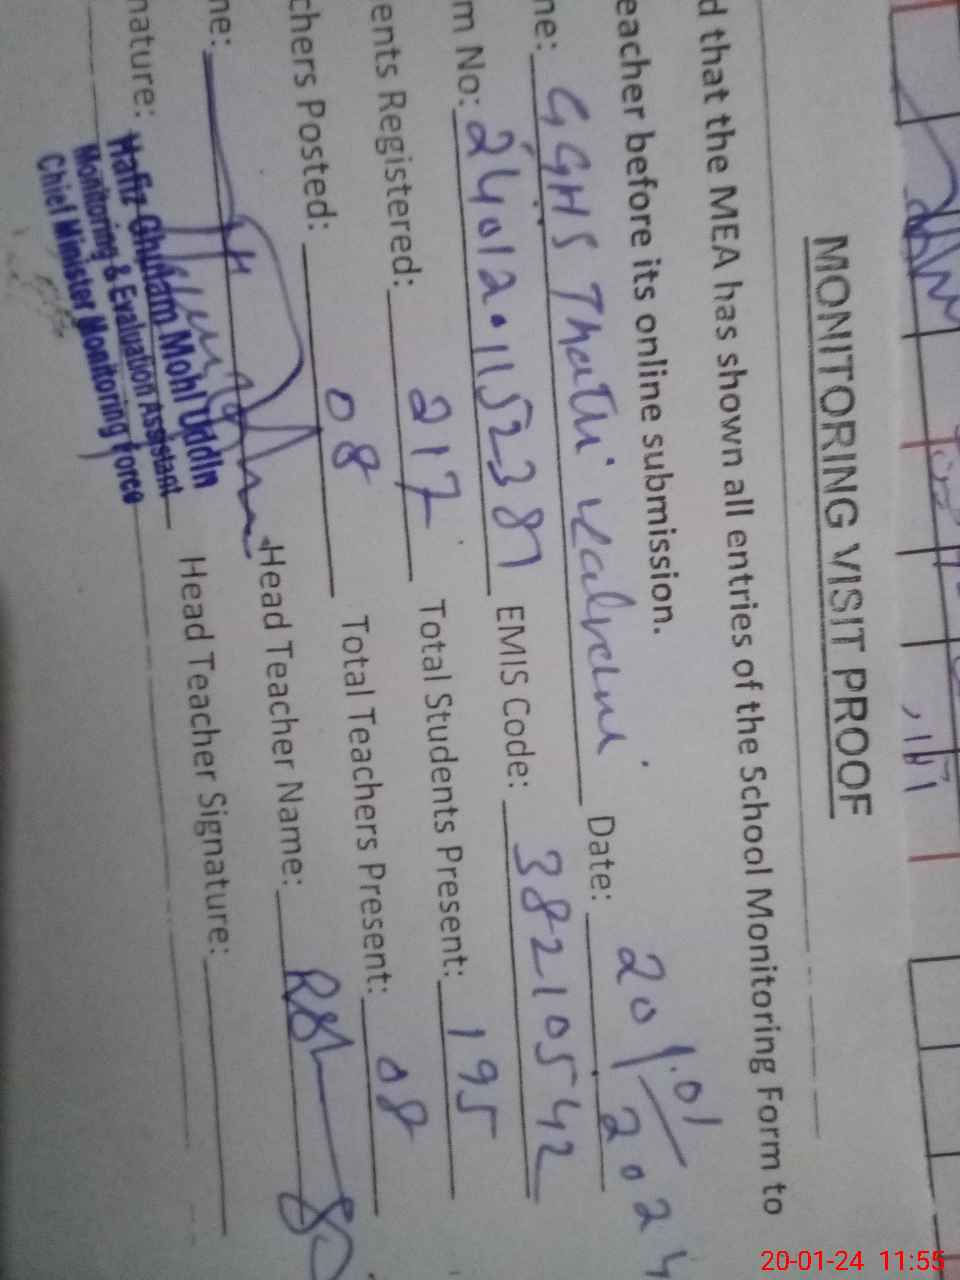 MONITORING VISIT PROOF
d that the MEA has shown all entries of the School Monitoring Form to
eacher before its online submission.
ne: GGHS Thathi Date: 20/01/2024
m No: EMIS Code: 38210542
ents Registered: 217 Total Students Present: 195
chers Posted: 08 Total Teachers Present: 08
ne: Head Teacher Name:
nature: Head Teacher Signature:
Hafiz Ghulam Mohi Uddin
Monitoring & Evaluation Assistant
Chief Minister Monitoring Force
20-01-24 11:55